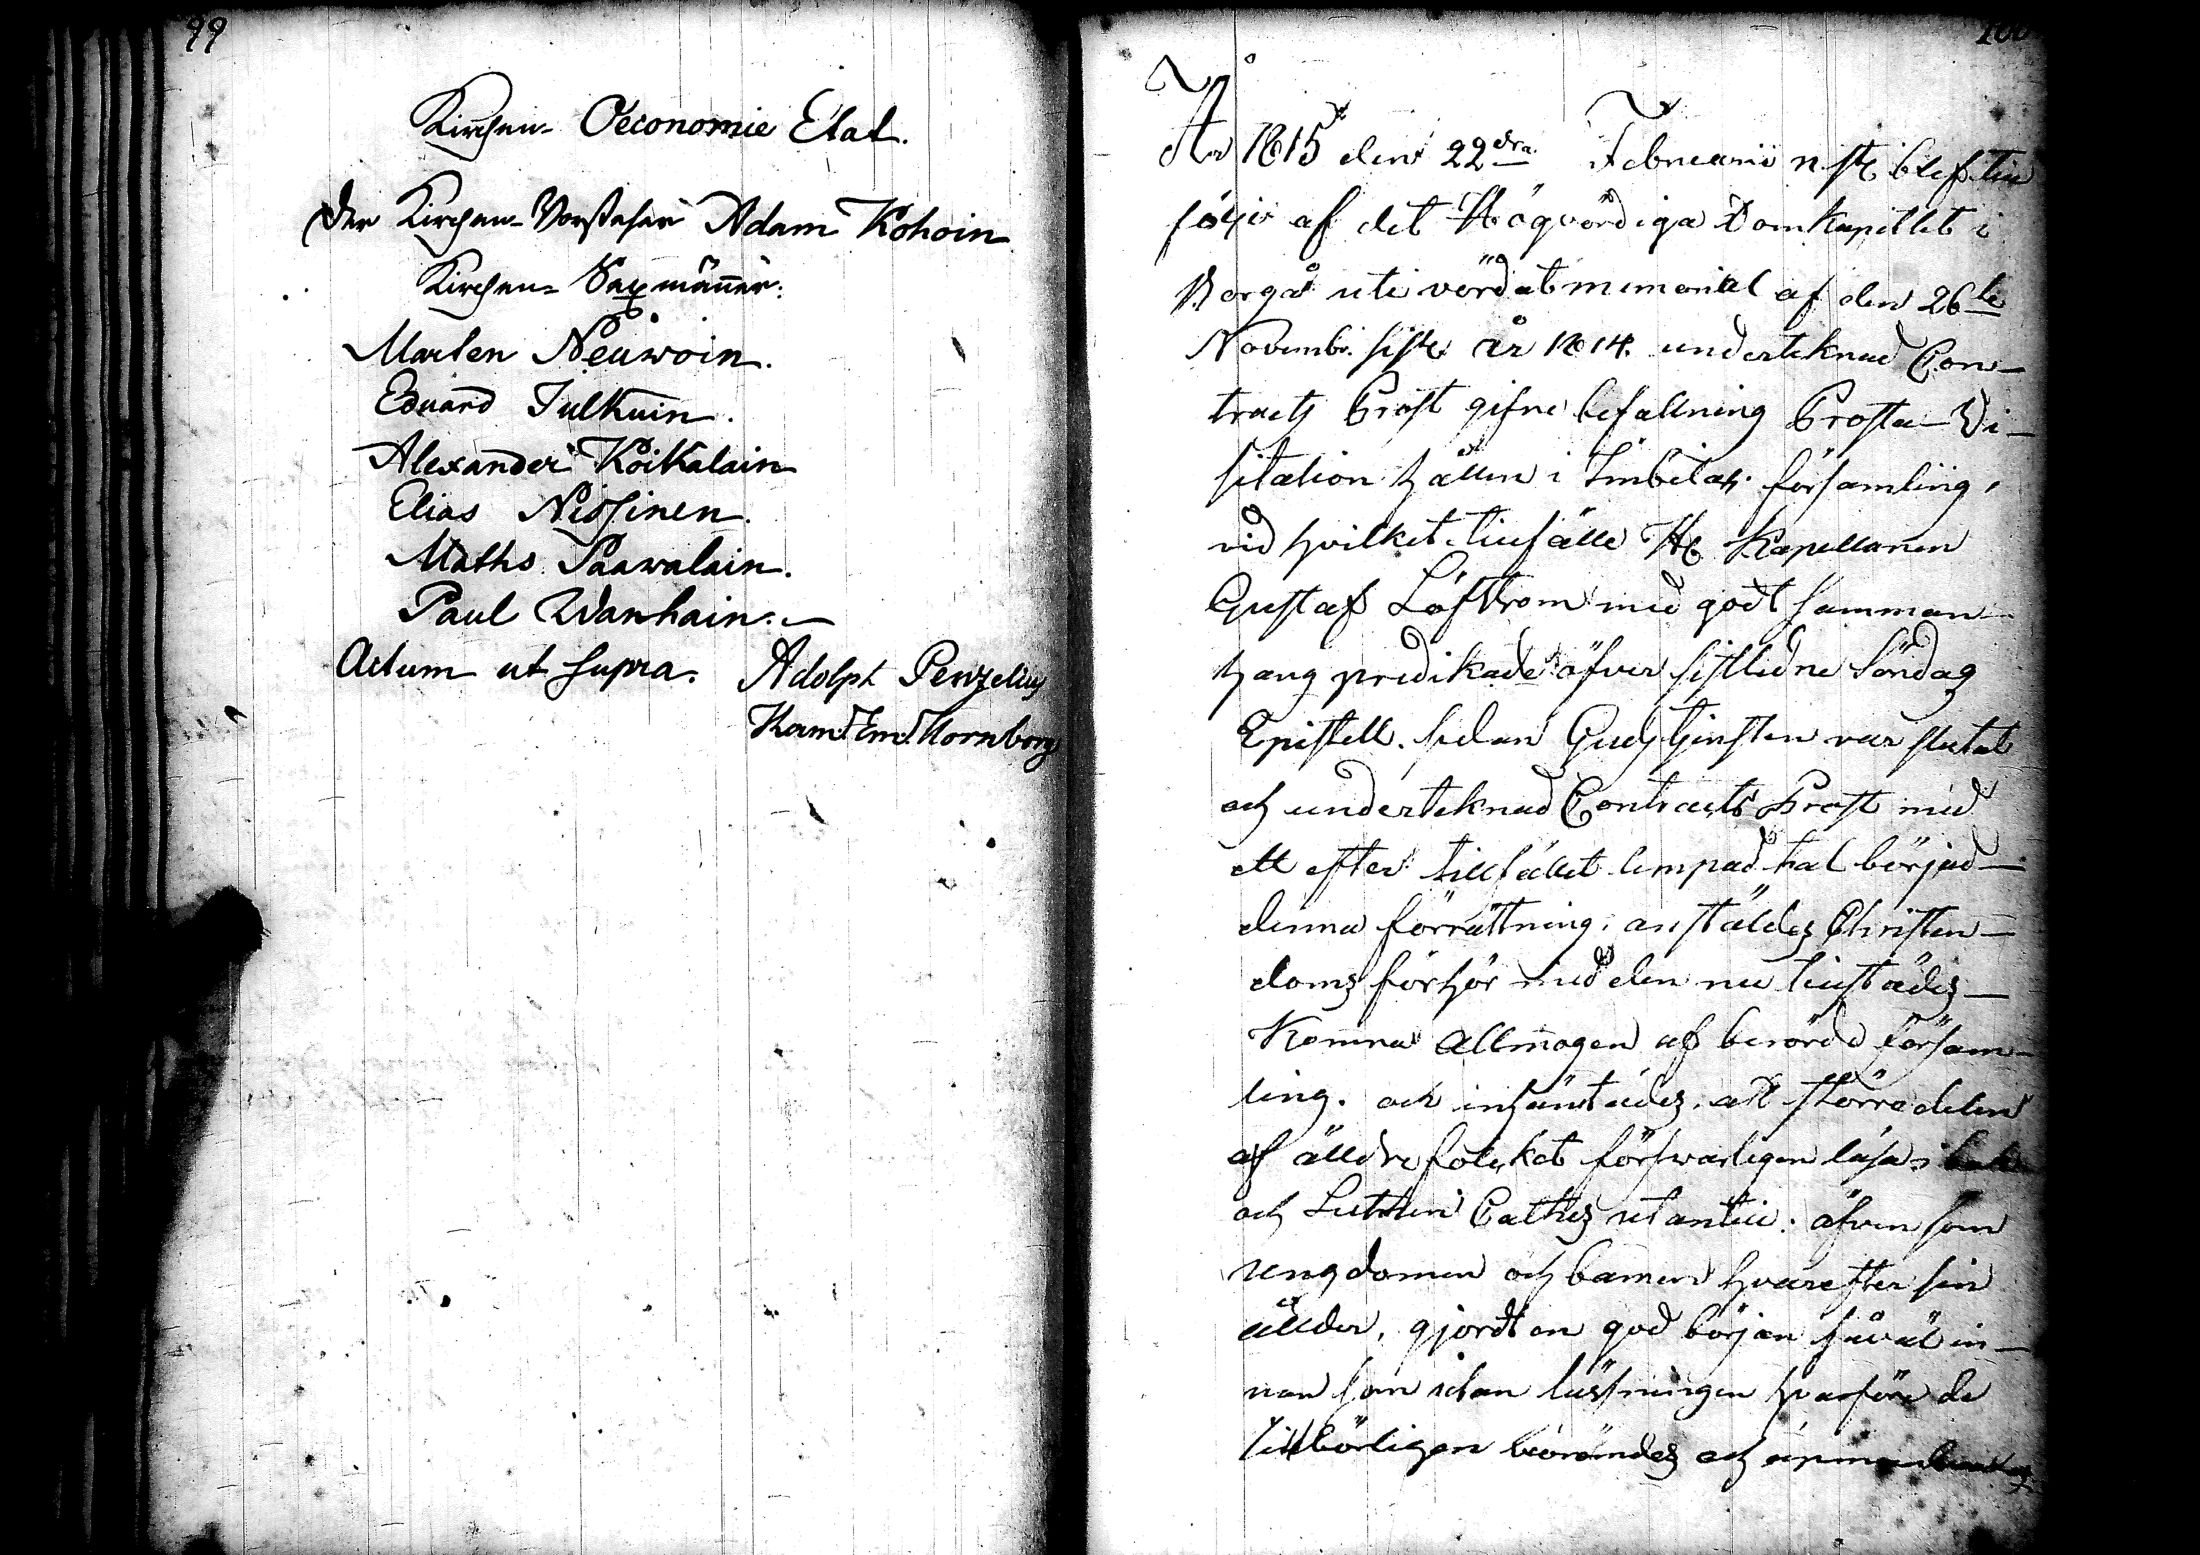 99
Kirchen- Oeconomie Etat.
Der Kirchen-Vorsteher Adam Kohoin
Kirchen-Sexmänner:
Marten Neuwoin.
Eduard Julkuin.
Alexander Koikalain
Elias Nissinen.
Maths Paawalain.
Paul Wanhain.
Actum ut supra. Adolph Penzelius
Kornborg
100
År 1815 den 22dra Februarii n. st. blef till
följe af det Högvördiga Domkapitlet i
Borgå uti vördat memorial af den 26te
Novembr. sistl. år 1814. underteknad Con-
tracts Prost gifne befallning Prosta-Vi-
sitation hållen i Imbilax församling,
vid hvilket tillfälle Hr Kapellanen
Gustaf Löfström med godt samman-
hang predikade öfver sistledne Söndag
Epistell. sedan Gudstjensten var slutat
och undertecknad Contracts Prost med
ett efter tillfället lempad tal börjad
denna förrättning, anstäldes Christen-
doms förhör med den nu tillstädes-
komna allmogen af berörde försam-
ling. och inhämtades, att större delen
af älldre folcket försvarligen läsa i
och Lutheri Cathes utantill: äfven som
ungdomen och barnen hvar efter sin
ållder, gjordt en god början såväl in-
nan som utan läsningen hvarföre de
tillbörligen berömdes och